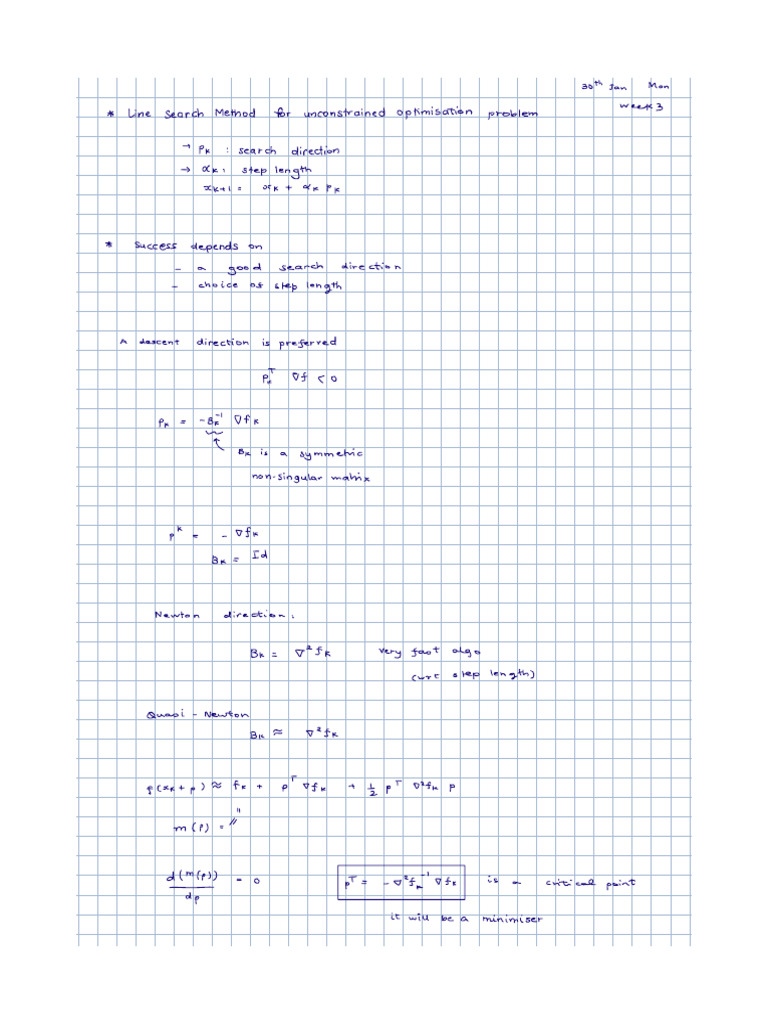 30th Jan Mon
week 3
* Line Search Method for unconstrained optimisation problem
→ pₖ : search direction
→ αₖ : step length
xₖ₊₁ = xₖ + αₖ pₖ
* Success depends on
- a good search direction
- choice of step length
A descent direction is preferred
pₖᵀ ∇f < 0
pₖ = -Bₖ⁻¹ ∇fₖ
Bₖ is a symmetric
non-singular matrix
pᵏ = - ∇fₖ
Bₖ = Id
Newton direction :
Bₖ = ∇²fₖ very fast algo
(wrt step length)
Quasi - Newton
Bₖ ≈ ∇²fₖ
f(xₖ + p) ≈ fₖ + pᵀ ∇fₖ + 1/2 pᵀ ∇²fₖ p
m(p) = "
d(m(p))/dp = 0 pᵀ = - ∇²fₖ⁻¹ ∇fₖ is a critical point
it will be a minimiser